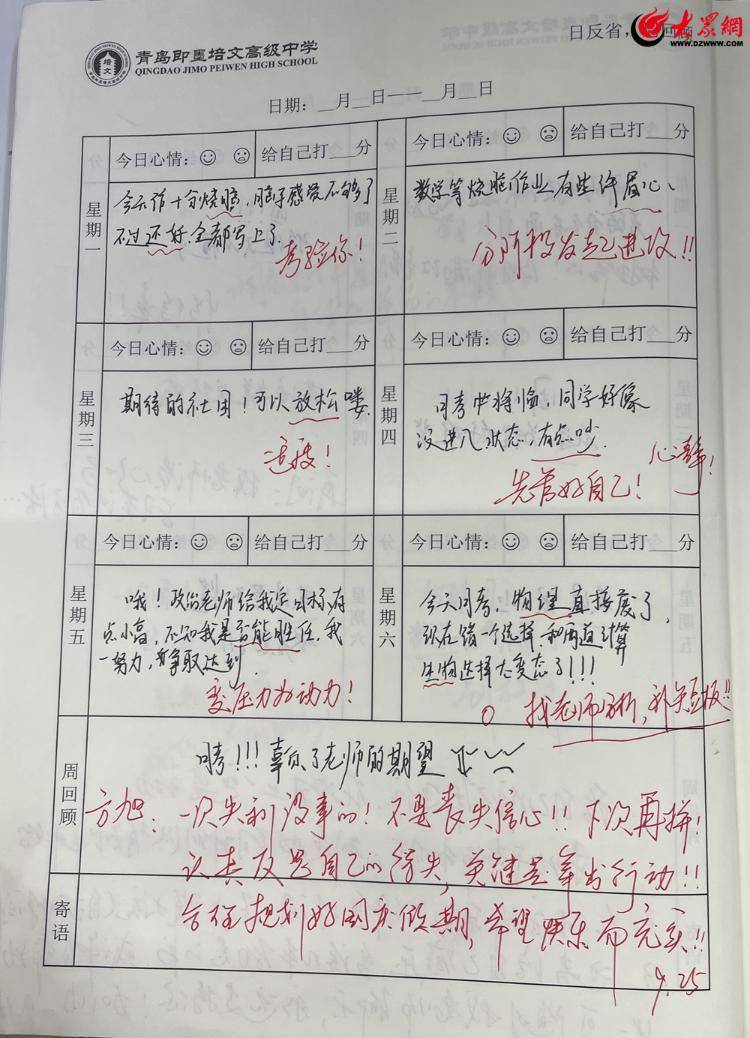 大众网
WWW.DZWWW.COM
青岛即墨培文高级中学
QINGDAO JIMO PEIWEN HIGH SCHOOL
培文
日反省，
日期：__月__日——__月__日
星期一
今日心情：
给自己打___分
今天作十分烧脑，脑子感觉不够了
不过还好全都写上了.
考验你！
星期二
今日心情：
给自己打___分
数学等烧脑作业有些许眉心、
分阶段发起进攻!!
星期三
今日心情：
给自己打___分
期待的社团！可以放松喽.
星期四
今日心情：
给自己打___分
月考即将临，同学好像
没进入状态，有点吵.
心静！
先管好自己！
星期五
今日心情：
给自己打___分
哦！政治老师给我定目标有
点小高，不知我是否能胜任，我
一努力，争取达到.
变压力为动力！
星期六
今日心情：
给自己打___分
今天月考，物理直接废了，
现在错一个选择，和两道计算
生物选择太变态了!!!
找老师分析，补短板!!
周回顾
唉!!!辜负了老师的期望
方旭：一次失利没事的！不要丧失信心!!下次再拼！
认真反思自己的得失，关键是拿出行动!!
寄语
合理规划好国庆假期，希望快乐而充实!!
9.25